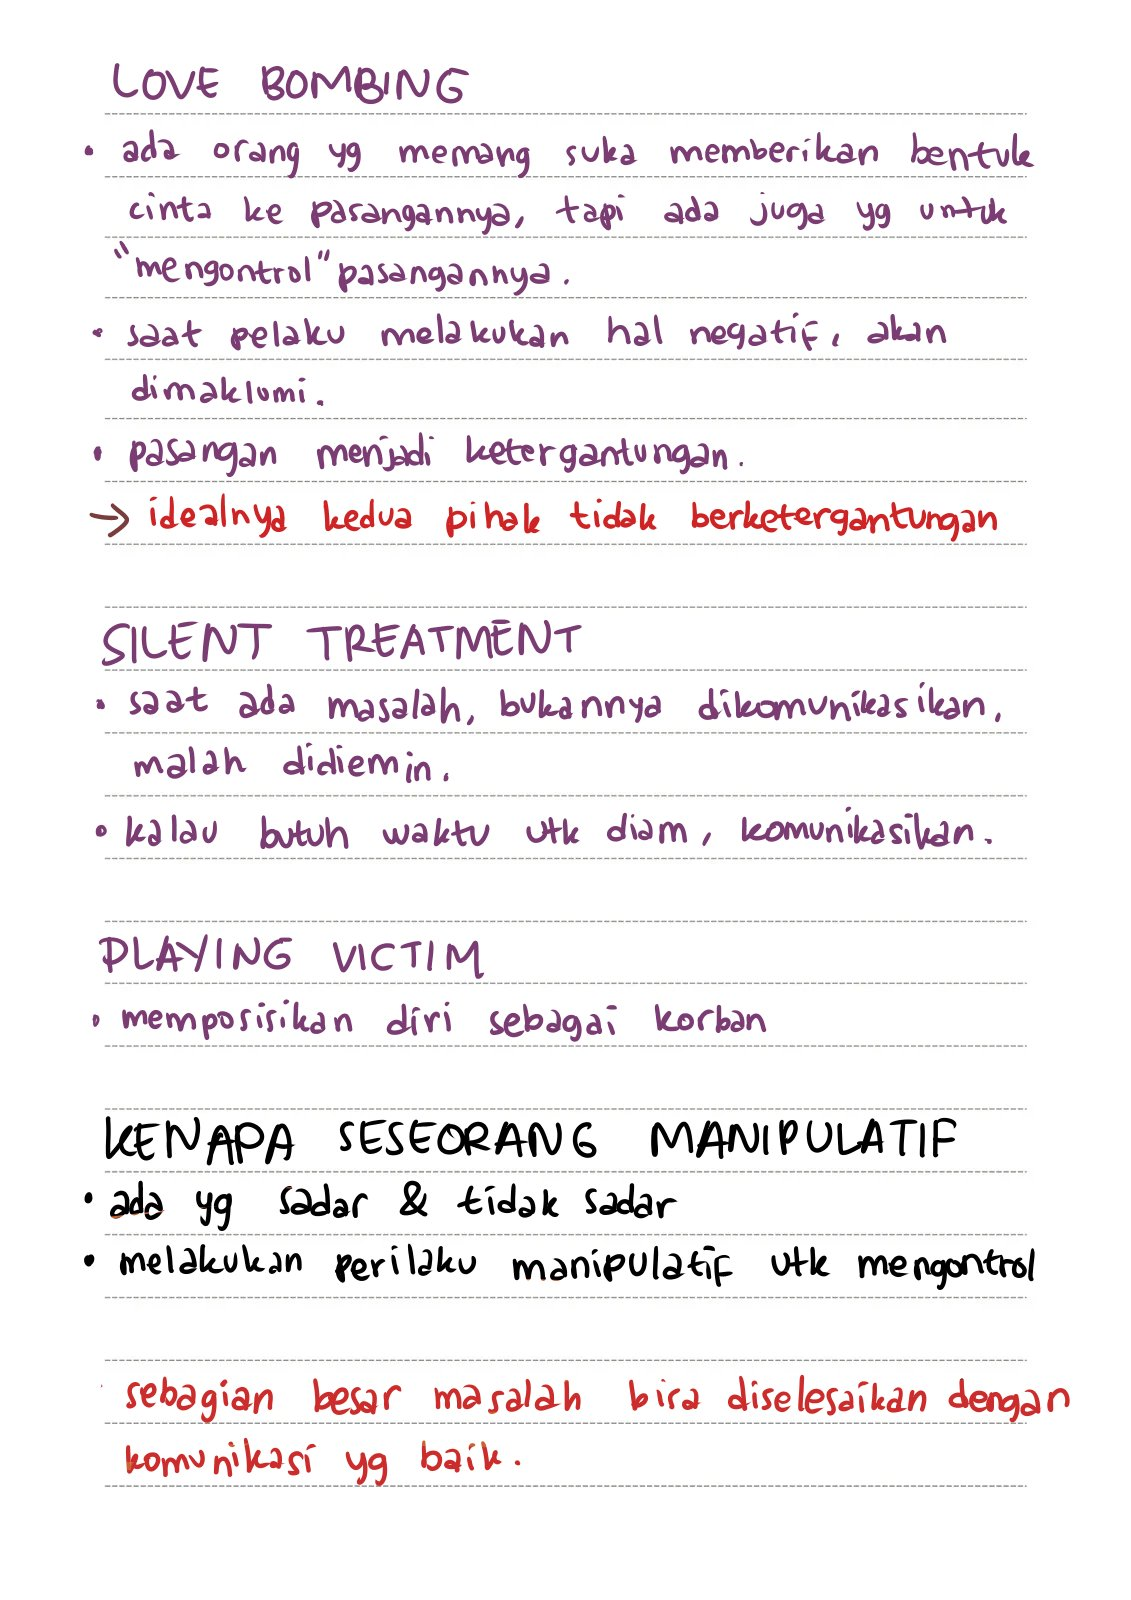 LOVE BOMBING
• ada orang yg memang suka memberikan bentuk
cinta ke pasangannya, tapi ada juga yg untuk
"mengontrol" pasangannya.
• saat pelaku melakukan hal negatif, akan
dimaklumi.
• pasangan menjadi ketergantungan.
→ idealnya kedua pihak tidak berketergantungan
SILENT TREATMENT
• saat ada masalah, bukannya dikomunikasikan,
malah didiemin.
• kalau butuh waktu utk diam, komunikasikan.
PLAYING VICTIM
• memposisikan diri sebagai korban
KENAPA SESEORANG MANIPULATIF
• ada yg sadar & tidak sadar
• melakukan perilaku manipulatif utk mengontrol
sebagian besar masalah bisa diselesaikan dengan
komunikasi yg baik.